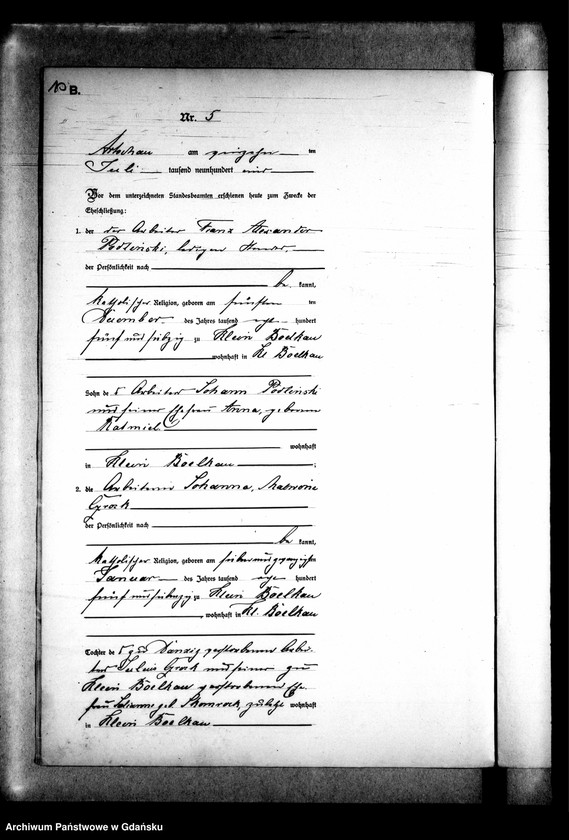 B.
Nr. 5
am ten
Juli tausend neunhundert
Vor dem unterzeichneten Standesbeamten erschienen heute zum Zwecke der
Eheschließung:
1. der der Arbeiter Franz Alexander
ledigen Standes,
der Persönlichkeit nach
be kannt,
katholischer Religion, geboren am fünften ten
Dezember des Jahres tausend acht hundert
fünf und siebzig zu Klein Boelkau
wohnhaft in Kl Boelkau
Sohn des Arbeiter Johann
und seiner Ehefrau Anna, geborene
wohnhaft
in Klein Boelkau .
2. die Arbeiterin Johanna,
der Persönlichkeit nach
be kannt,
katholischer Religion, geboren am siebenundzwanzigsten
Januar des Jahres tausend acht hundert
fünf und siebzig zu Klein Boelkau
, wohnhaft in Kl. Boelkau
Tochter des zu Danzig gestorbenen Arbei-
ter Julius und seiner zu
Klein Boelkau gestorbenen Ehe-
frau geb. zuletzt wohnhaft
in Klein Boelkau
Archiwum Państwowe w Gdańsku